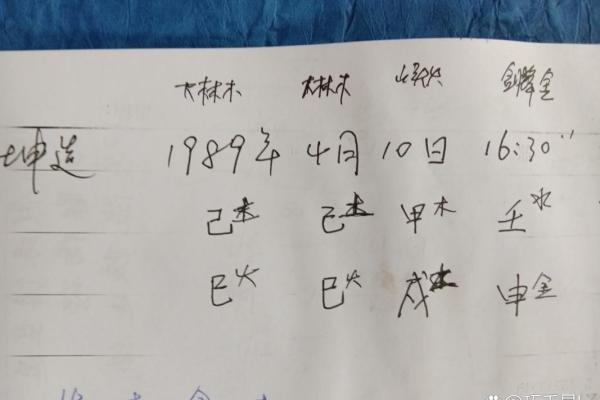 大林木 大林木 山头火 剑峰金
坤造 1989年 4月 10日 16:30''
己土 己土 甲木 壬水
巳火 巳火 戌土 申金